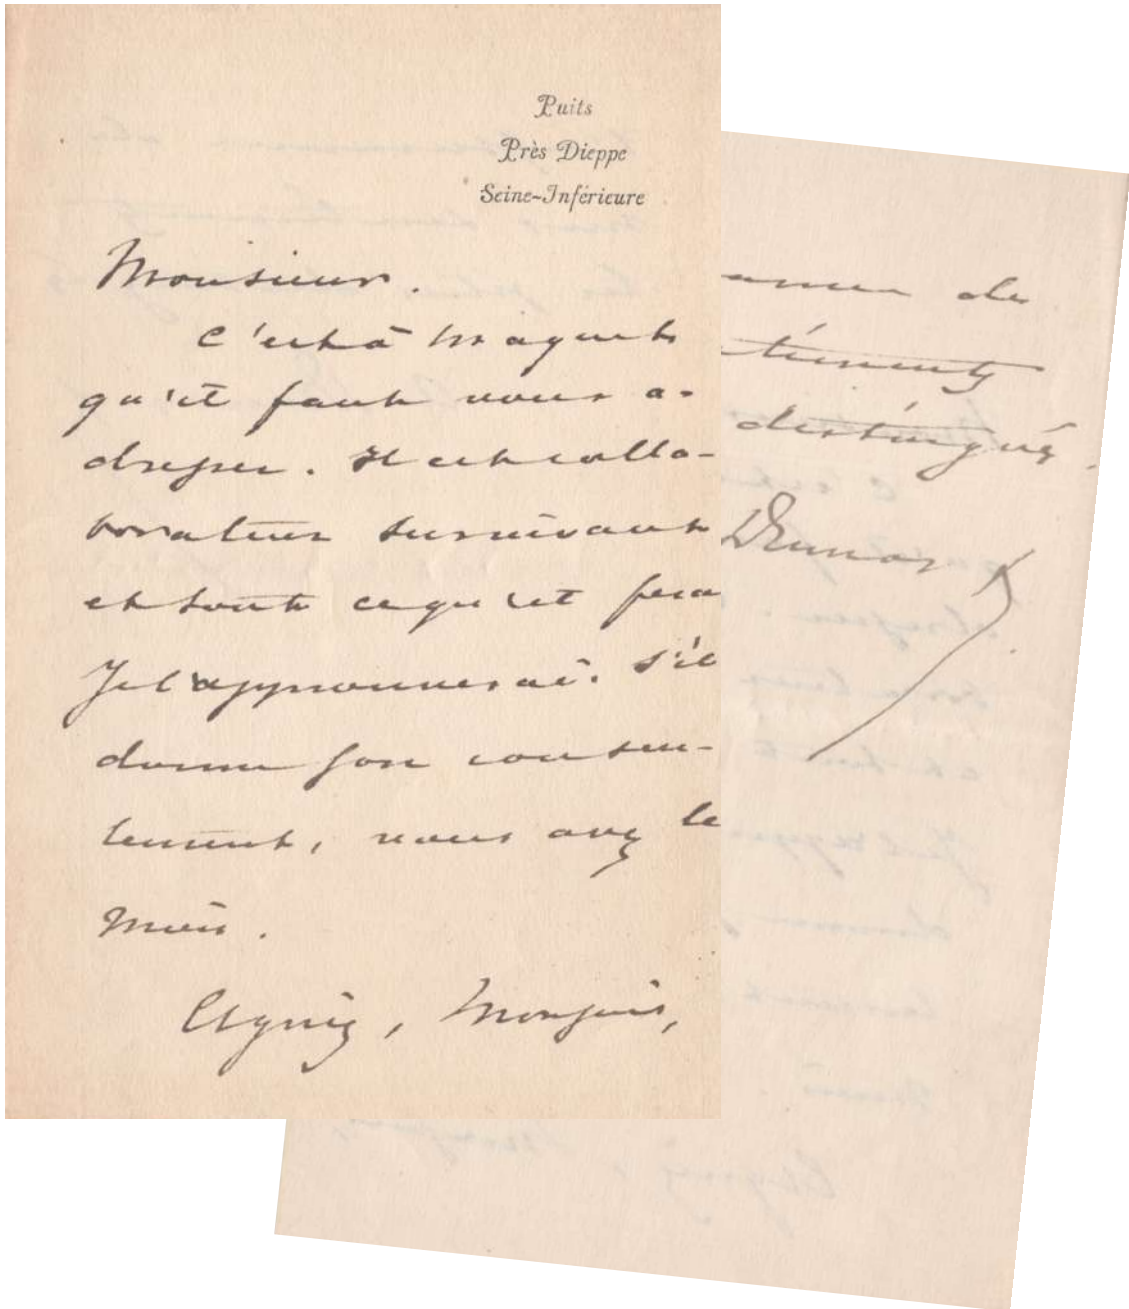 Puits
Près Dieppe
Seine-Inférieure
Monsieur.
C'est à Maquet
qu'il faut vous a-
dresser. Il est colla-
borateur survivant
et tout ce qu'il fera
Je l'approuverai. S'il
donne son consen-
tement, vous avez le
mien.
Agréez, Monsieur,
de
distingués.
Dumas